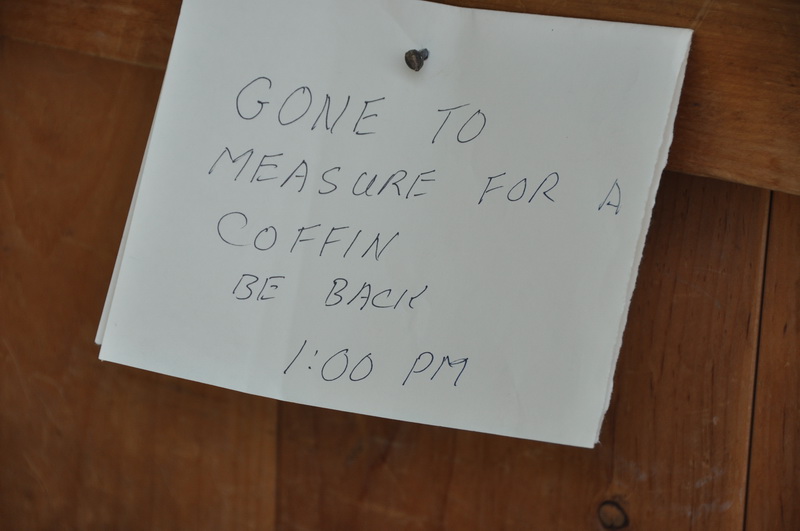 GONE TO
MEASURE FOR A
COFFIN
BE BACK
1:00 PM